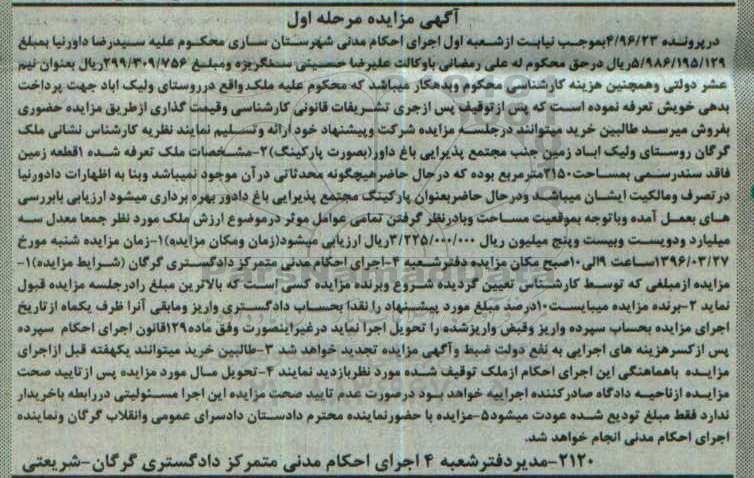 آگهی مزایده مرحله اول
درپرونده ۴/۹۶/۲۳بموجب نیابت ازشعبه اول اجرای احکام مدنی شهرستان ساری محکوم علیه سیدرضا داورنیا بمبلغ
۵/۹۸۶/۱۹۵/۱۲۹ریال درحق محکوم له علی رمضانی باوکالت علیرضا حسینی سنگریزه ومبلغ ۲۹۹/۳۰۹/۷۵۶ریال بعنوان نیم
عشر دولتی وهمچنین هزینه کارشناسی محکوم وبدهکار میباشد که محکوم علیه ملک واقع درروستای ولیک اباد جهت پرداخت
بدهی خویش تعرفه نموده است که پس ازتوقیف پس ازجری تشریفات قانونی کارشناسی وقیمت گذاری ازطریق مزایده حضوری
بفروش میرسد طالبین خرید میتوانند درجلسه مزایده شرکت وپیشنهاد خود ارائه وتسلیم نمایند نظریه کارشناس نشانی ملک
گرگان روستای ولیک اباد زمین جنب مجتمع پذیرایی باغ داور(بصورت پارکینگ)۲-مشخصات ملک تعرفه شده ۱قطعه زمین
فاقد سندرسمی بمساحت۲۱۵۰مترمربع بوده که درحال حاضرهیچگونه محدثاتی درآن موجود نمیباشد وبنا به اظهارات دادورنیا
درتصرف ومالکیت ایشان میباشد ودرحال حاضربعنوان پارکینگ مجتمع پذیرایی باغ دادور بهره برداری میشود ارزیابی بابررسی
های بعمل آمده وباتوجه بموقعیت مساحت وبادرنظر گرفتن تمامی عوامل موثر درموضوع ارزش ملک مورد نظر جمعا معدل سه
میلیارد ودویست وبیست وپنج میلیون ریال ۳/۲۲۵/۰۰۰/۰۰۰ریال ارزیابی میشود(زمان ومکان مزایده)۱-زمان مزایده شنبه مورخ
۱۳۹۶/۰۳/۲۷ساعت ۹الی۱۰صبح مکان مزایده دفترشعبه ۴-اجرای احکام مدنی متمرکز دادگستری گرگان (شرایط مزایده)۱-
مزایده ازمبلغی که توسط کارشناس تعیین گردیده شروع وبرنده مزایده کسی است که بالاترین مبلغ رادرجلسه مزایده قبول
نماید ۲-برنده مزایده میبایست۱۰درصد مبلغ مورد پیشنهاد را نقدا بحساب دادگستری واریز ومابقی آنرا ظرف یکماه ازتاریخ
اجرای مزایده بحساب سپرده واریز وقبض واریزشده را تحویل اجرا نماید درغیراینصورت وفق ماده۱۲۹قانون اجرای احکام سپرده
پس ازکسرهزینه های اجرایی به نفع دولت ضبط وآگهی مزایده تجدید خواهد شد ۳-طالبین خرید میتوانند یکهفته قبل ازاجرای
مزایده باهماهنگی این اجرای احکام ازملک توقیف شده مورد نظربازدید نمایند ۴-تحویل مال مورد مزایده پس ازتایید صحت
مزایده ازناحیه دادگاه صادرکننده اجراییه خواهد بود درصورت عدم تایید صحت مزایده این اجرا مسئولیتی دررابطه باخریدار
ندارد فقط مبلغ تودیع شده عودت میشود۵-مزایده با حضورنماینده محترم دادستان دادسرای عمومی وانقلاب گرگان ونماینده
اجرای احکام مدنی انجام خواهد شد.
۲۱۲۰-مدیردفترشعبه ۴ اجرای احکام مدنی متمرکز دادگستری گرگان-شریعتی
ParsNamadData